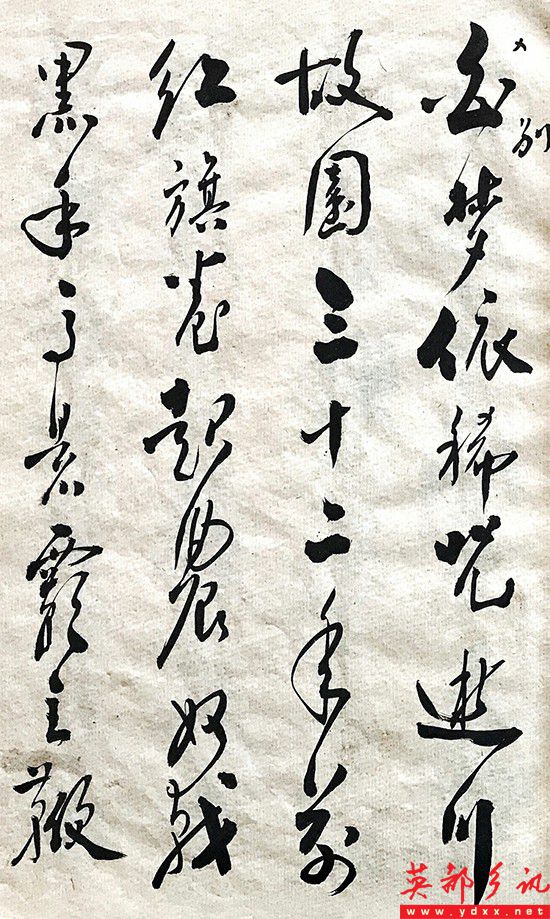 别
梦依稀咒逝川
故園三十二年前
红旗卷起農奴戟
黑手高悬霸主鞭
英都乡讯
www.ydxx.net